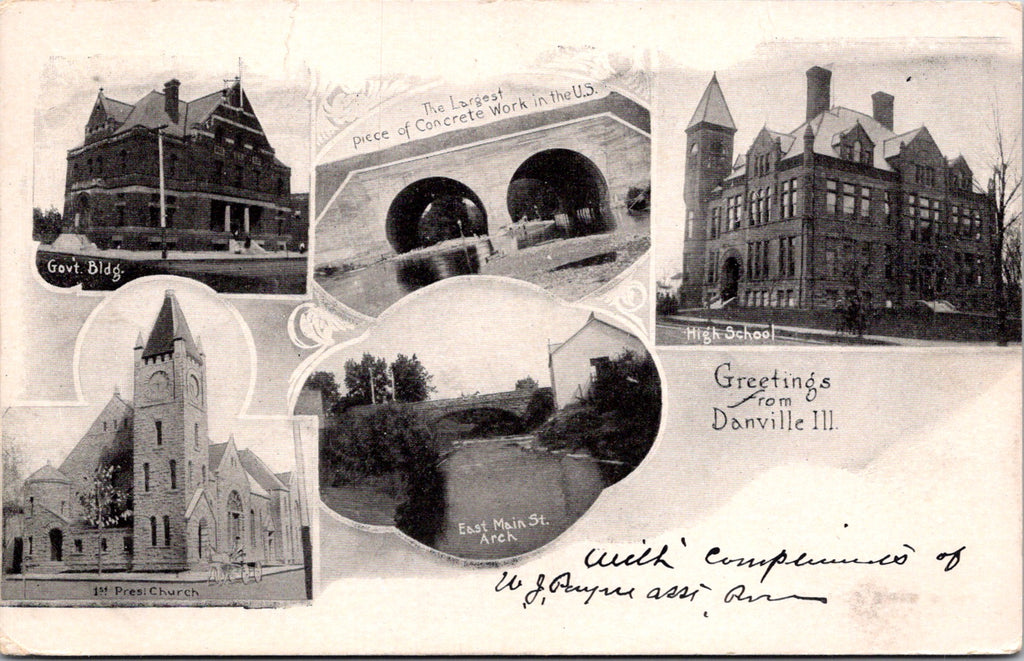 The Largest
piece of Concrete Work in the U.S.
Gov't. Bldg.
High School
Greetings
from
Danville Ill.
East Main St.
Arch
1st Pres. Church
With Compliments of
W. J. Payne asst.